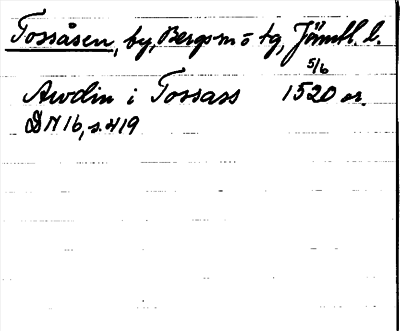 Tossåsen, by, Bergs sn o tg, Jämtl. l.
5/6
Awdin i Tossass 1520 or.
DN 16, s. 419